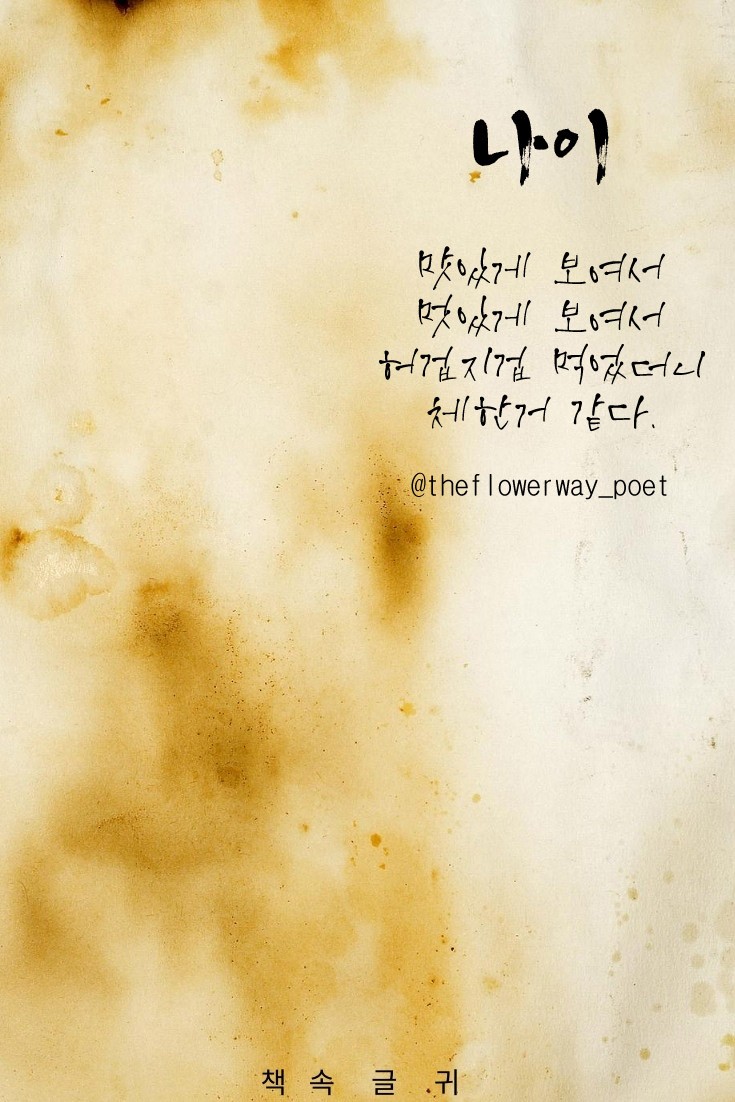 나이
맛있게 보여서
멋있게 보여서
허겁지겁 먹었더니
체한거 같다.
@theflowerway_poet
책 속 글 귀